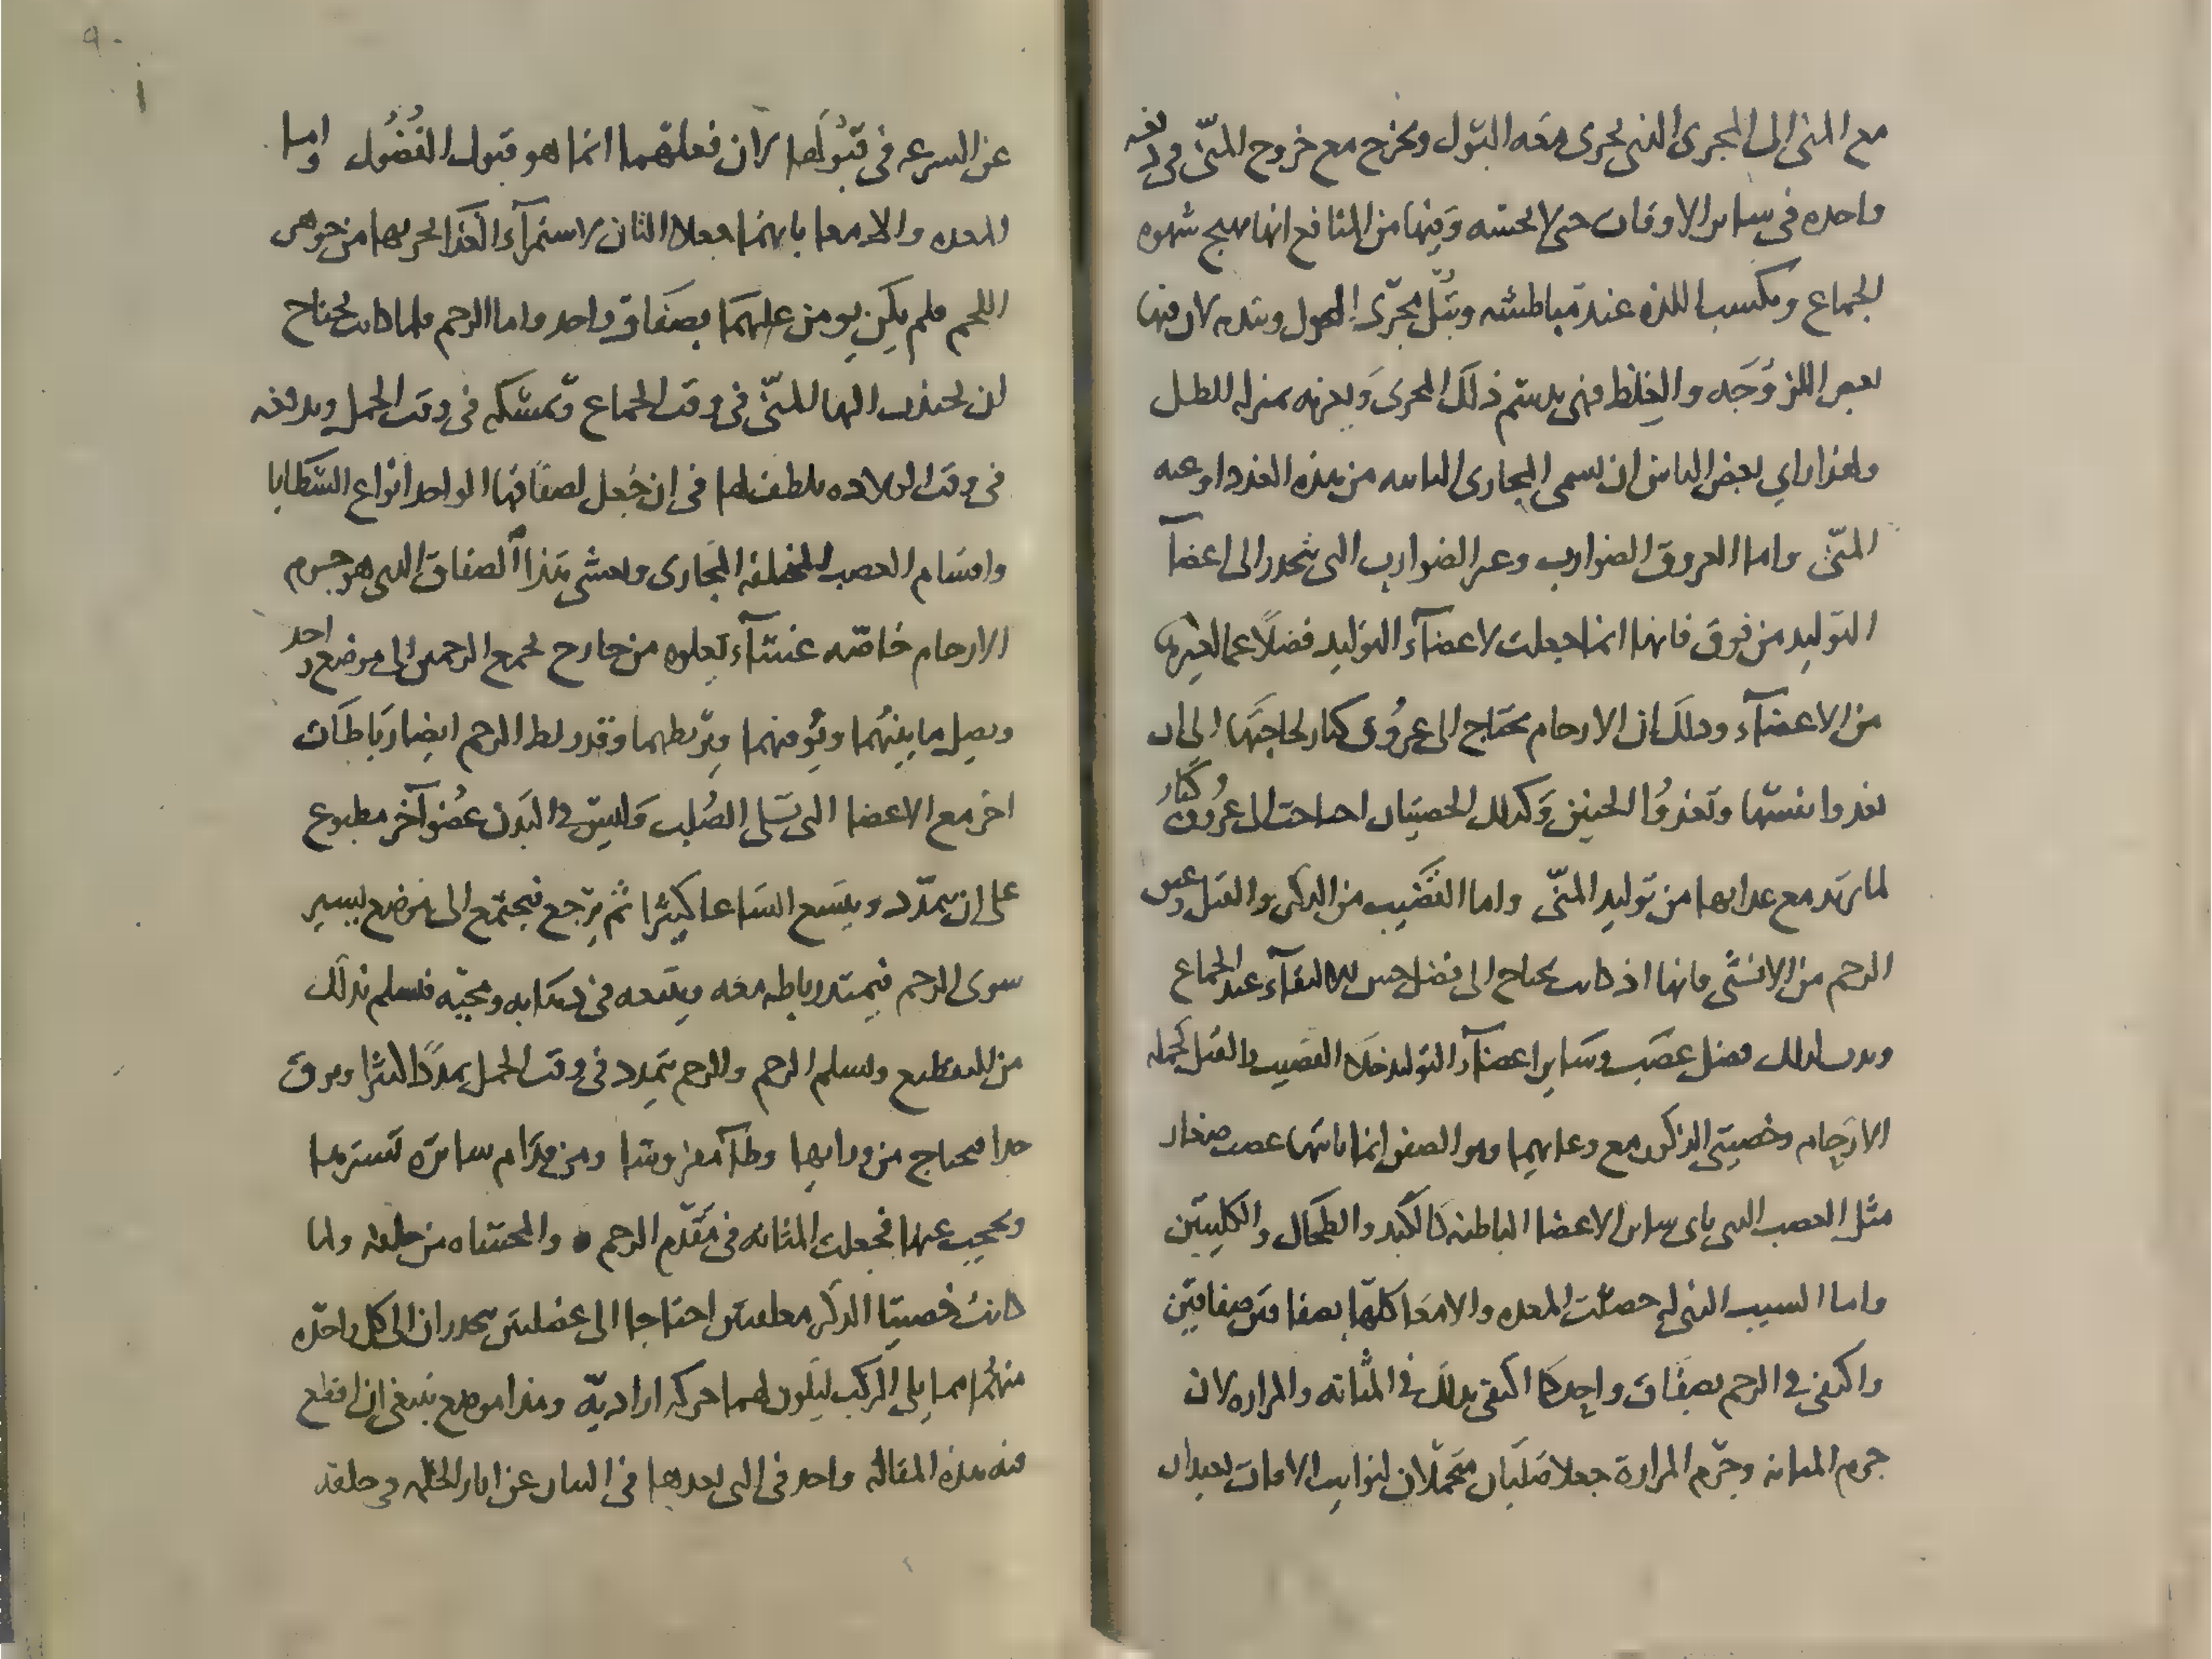 مع المنى الى المجرى الذى يجرى معه البول ويخرج مع خروج المنىّ فى دفعه
واحده فى ساير الاوقات حتى لا يحتبسه وفيها من المنافع انها تهيج شهوه
الجماع وتكسب اللذه عند مباطشته وتبُلّ مجرى البول وتنديه لان فيها
بعض اللزوجَه والغِلظ فهى بدسم ذلك المجرى وبدنه بمنزله الطل
ولهذا راي بعض الناس ان يسمى المجارى النابته من هذه الغدد اوعيه
المنىّ واما العروق الضوارب وغير الضوارب التى تنحدر الى اعضآ
التوليد من فوق فانها انما جعلت لاعضآء التوليد فضلاً عما لغيرها
من الاعضآء وذلك ان الارحام تحتاج الى عروُق كبار لحاجتها الى ان
تغدوا نفسها وتغدوُا الجنين وكذلك الخصيتان احتاجتا الى عروُق كبار
لما تريد مع غدايها من توليد المنىّ واما القضَيب من الذكر والقبل وعنق
الرحم من الانثى فانها اذ كانت تحتاج الى فضل حس للالتقآء عند الجماع
وبدن لذلك فضل عصَب وسَاير اعضآء التوليد خلا القضيب والقبل كجمله
الارحام وخصيتى الذكور مع وعايهما وهو الصفن انما ياتيها عصب صغار
مثل العصب الذى ياتى ساير الاعضا الباطنه كالكَبد والطحال والكليتين
واما السبب الذى له حصلت المعده والامعَا كلّها بصفاقين صفاقين
واكتفى فى الرحم بصفَاق واحد كما اكتفى بذلك فى المثانه والمراره لان
جرم المثانه وجرم المرارة جعلا صَلبَان متحمّلان لنوايب الافات بعيدان
عن السرعه فى قبُولها لان فعليّهما انما هو قبول الفُضُول واما
المعده والامعا بانهما جعلا اللتان لاستمرآء الغذآ لحربهما من جوهر
اللحم فلم يكن يومن عليهمَا بصفَاق واحد واما الرحم فلما كانت تحتاج
ان تجتذب اليها المنىّ فى وقت الجماع وتمسكه فى وقت الحمل وتدفعه
فى وقت الولاده تلطف لها فى ان جُعل لصفاقها الواحد انواع الشظايا
واقسَام العصب المختلفه المجارى ولغشى هذا الصفاق الذى هو جرم
الارحام خاصّه غشآء يعلوه من خارج يجمع الرحمين الى موضع واحد
ويصِل ما بينهُما ويُوفهما ويربطهما وقد ربط الرحم ايضا ربَاطَات
اخر مع الاعضا التى تلى الصُلب وَليس فى البدَن عضُو آخر مطبوع
على ان يتمدّد ويتسَع اتسَاعا كثيرا ثم يرجع فيجتمع الى موضع يسير
سوى الرحم فيمتد رباطه معَه ويتبعه فى ذهابه ومجيّه فسلم بذلك
من التقطيع وتسلم الرحم والرحم تمدد فى وقت الحمل تمددًا كثيرا وترق
جدا فتحتاج من ورايها وطآ مفروشا ومن قدّام ساترة تسترها
وتحجب عنها فجعلت المثانه فى مقدّم الرحم والمعا المستقيم من خلفه ولما
كانت خصيتا الذكر معلقتين احتاجا الى عضلتين تنحدران الى كل واحده
منهُما مما يلى المركب ليكون لهما حركه اراديّه وهذا موضع ينبغى ان اقطع
فيه هذه المقاله واخذ فى التى بعدها فى البيان عن اثار الحكمه فى خلقه